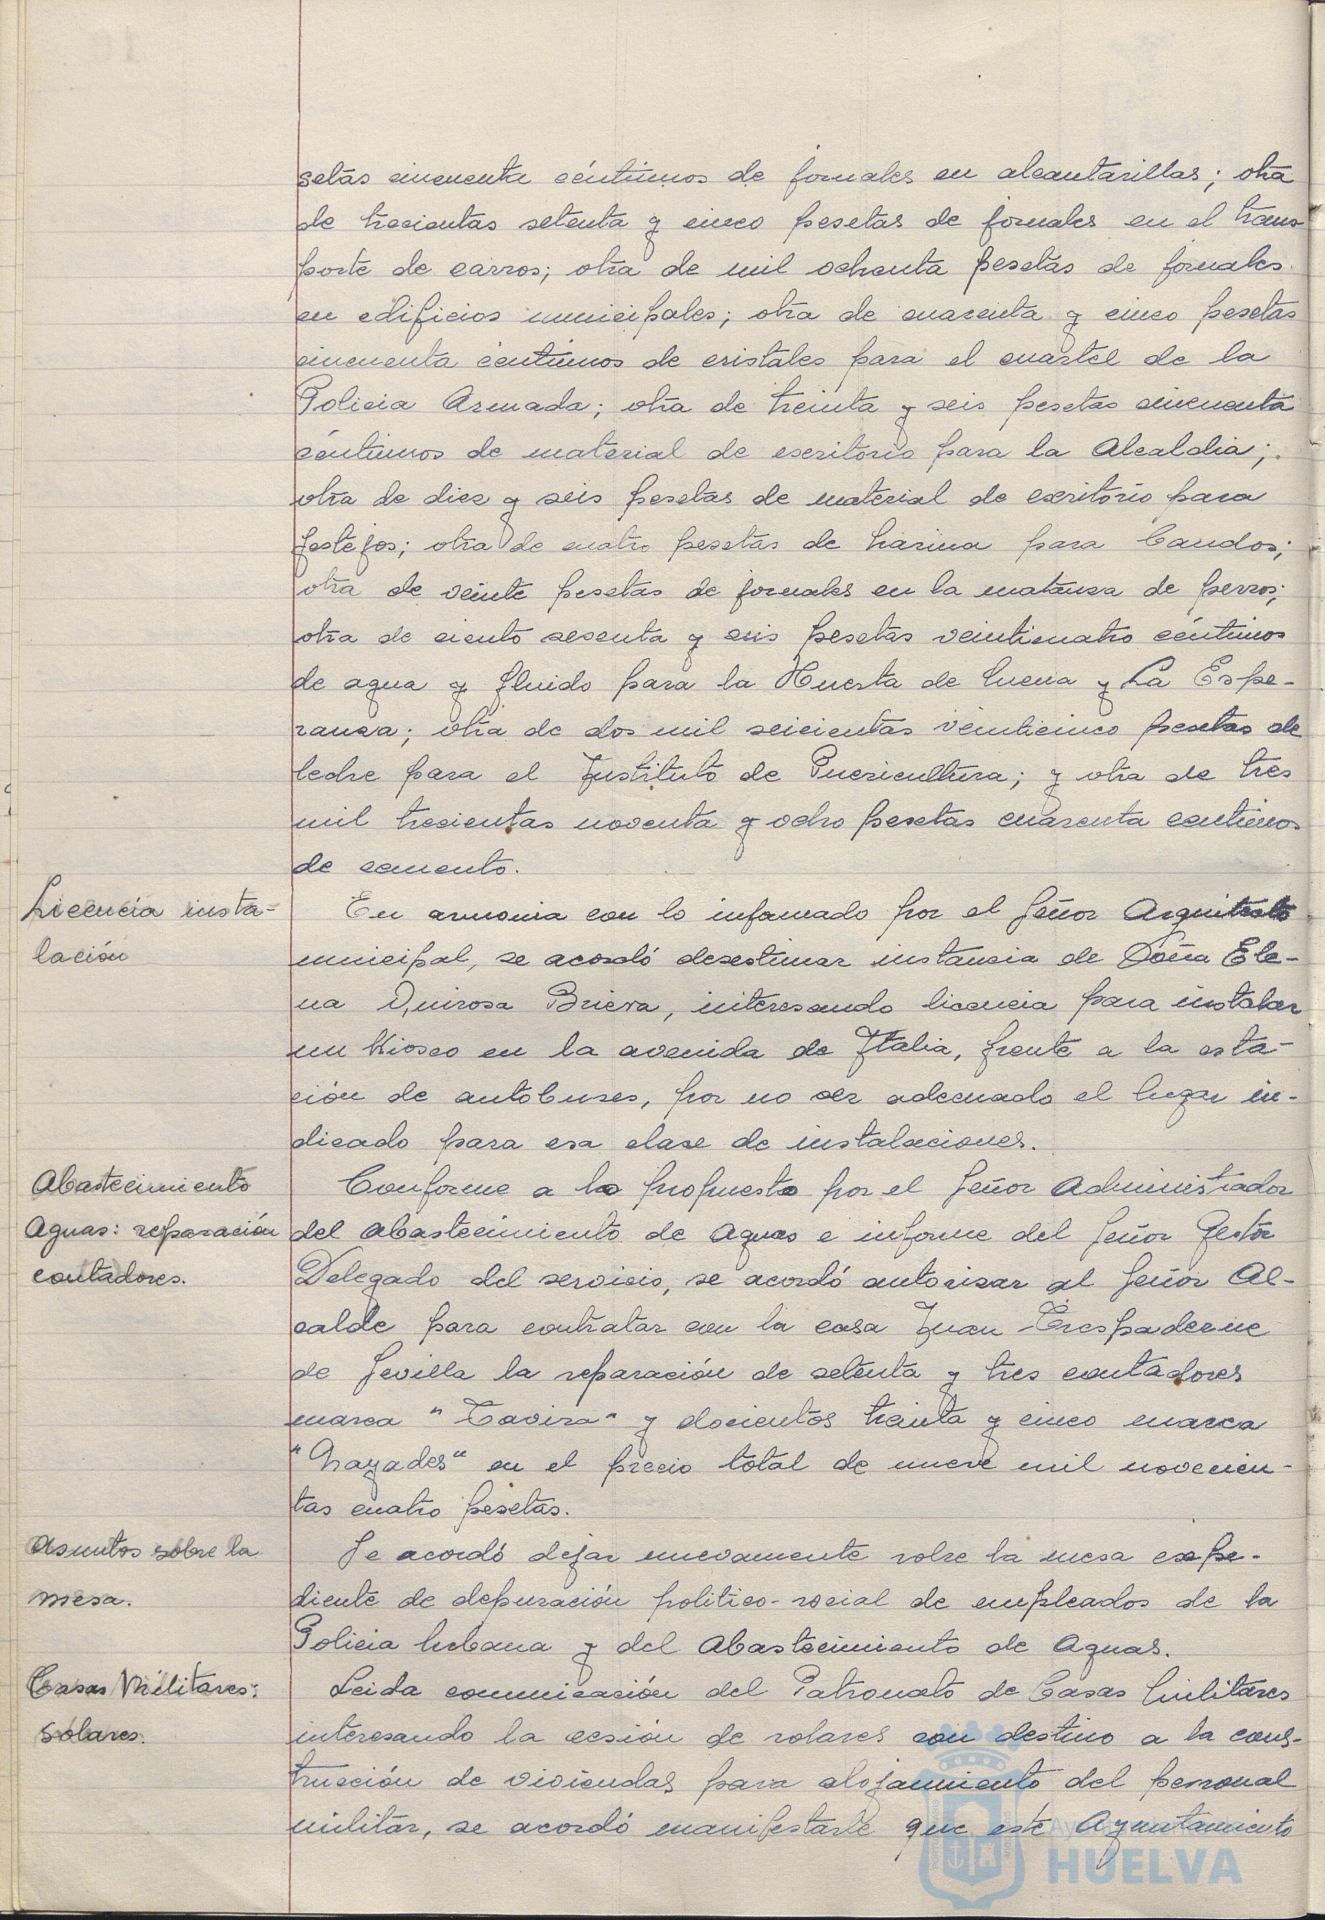 setas cincuenta céntimos de jornales en alcantarillas; otra
de trecientas setenta y cinco pesetas de jornales en el trans
porte de carros; otra de mil ochenta pesetas de jornales
en edificios municipales; otra de cuarenta y cinco pesetas
cincuenta centimos de cristales para el cuartel de la
Policia Armada; otra de treinta y seis pesetas cincuenta
céntimos de material de escritorio para la Alcaldia;
otra de diez y seis pesetas de material de escritorio para
festejos; otra de cuatro pesetas de harina para Candos;
otra de veinte pesetas de jornales en la matanza de perros;
otra de ciento sesenta y seis pesetas veinticuatro céntimos
de agua y fluido para la Huerta de Mena y La Espe-
ranza; otra de dos mil seicientas veinticinco pesetas de
leche para el Instituto de Puericultura; y otra de tres
mil trecientas noventa y ocho pesetas cuarenta centimos
de cemento.
Licencia insta-
lación
En armonia con lo informado por el Señor Arquitecto
municipal, se acordó desestimar instancia de Doña Ele-
na Quirosa Brieva, interesando licencia para instalar
un Kiosco en la avenida de Italia, frente a la esta-
ción de autobuses, por no ser adecuado el lugar in-
dicado para esa clase de instalaciones.
Abastecimiento
Aguas: reparación
contadores.
Conforme a lo propuesto por el Señor Administrador
del Abastecimiento de Aguas e informe del Señor Gestor
Delegado del servicio, se acordó autorizar al Señor Al-
calde para contratar con la casa Juan Trespaderne
de Sevilla la reparación de setenta y tres contadores
marca "Tavira" y docientos treinta y cinco marca
en el precio total de nueve mil novecien-
tas cuatro pesetas.
Asuntos sobre la
mesa.
Se acordó dejar nuevamente sobre la mesa expe-
diente de depuración politico-social de empleados de la
Policia Urbana y del Abastecimiento de Aguas.
Casas Militares:
Solares.
Leida comunicación del Patronato de Casas Militares
interesando la cesión de solares con destino a la cons-
trucción de viviendas para alojamiento del personal
militar, se acordó manifestarle que este Ayuntamiento
Ayuntamiento
HUELVA